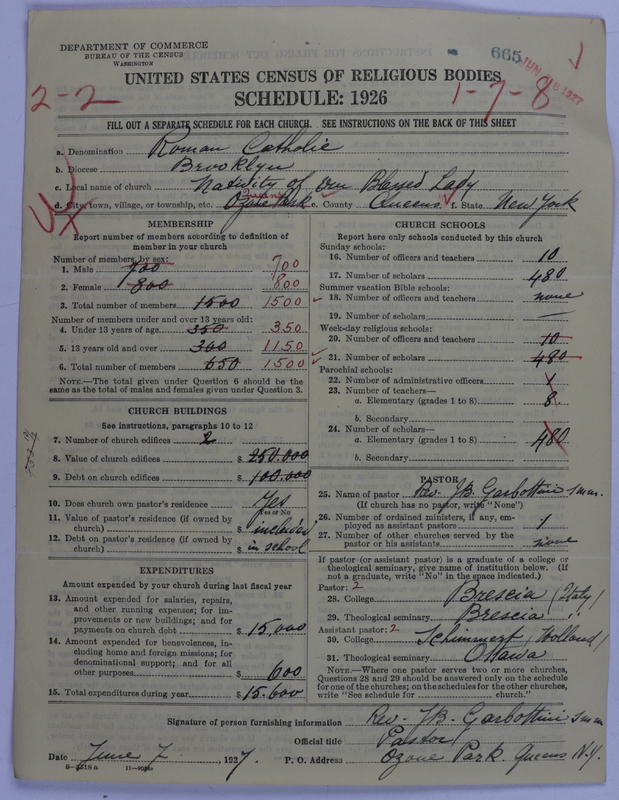 DEPARTMENT OF COMMERCE
BUREAU OF THE CENSUS
WASHINGTON
665
2-2
1-7-8
UNITED STATES CENSUS OF RELIGIOUS BODIES
SCHEDULE: 1926
FILL OUT A SEPARATE SCHEDULE FOR EACH CHURCH. SEE INSTRUCTIONS ON THE BACK OF THIS SHEET
a. Denomination Roman Catholic
b. Diocese Brooklyn
c. Local name of church Nativity of Our Blessed Lady
d. City, town, village, or township, etc. Ozone Park e. County Queens f. State New York
MEMBERSHIP
Report number of members according to definition of
member in your church
Number of members, by sex:
1. Male 700 700
2. Female 800 800
3. Total number of members 1500 1500
Number of members under and over 13 years old:
4. Under 13 years of age 350 350
5. 13 years old and over 300 1150
6. Total number of members 650 1500
NOTE.—The total given under Question 6 should be the
same as the total of males and females given under Question 3.
CHURCH BUILDINGS
See instructions, paragraphs 10 to 12
7. Number of church edifices 2
8. Value of church edifices $ 250.000
9. Debt on church edifices $ 100.000
10. Does church own pastor's residence Yes
Yes or No
11. Value of pastor's residence (if owned by
church) $ included
12. Debt on pastor's residence (if owned by
church) $ in school
EXPENDITURES
Amount expended by your church during last fiscal year
13. Amount expended for salaries, repairs,
and other running expenses; for im-
provements or new buildings; and for
payments on church debt $ 15,000
14. Amount expended for benevolences, in-
cluding home and foreign missions; for
denominational support; and for all
other purposes $ 600
15. Total expenditures during year $ 15.600
CHURCH SCHOOLS
Report here only schools conducted by this church
Sunday schools:
16. Number of officers and teachers 10
17. Number of scholars 480
Summer vacation Bible schools:
18. Number of officers and teachers none
19. Number of scholars —
Week-day religious schools:
20. Number of officers and teachers 10
21. Number of scholars 480
Parochial schools:
22. Number of administrative officers 1
23. Number of teachers—
a. Elementary (grades 1 to 8) 8
b. Secondary
24. Number of scholars—
a. Elementary (grades 1 to 8) 480
b. Secondary
PASTOR
25. Name of pastor Rev. JB. Garbottini s.m.m.
(If church has no pastor, write "None")
26. Number of ordained ministers, if any, em-
ployed as assistant pastors 1
27. Number of other churches served by the
pastor or his assistants none
If pastor (or assistant pastor) is a graduate of a college or
theological seminary, give name of institution below. (If
not a graduate, write "No" in the space indicated.)
Pastor: 2
28. College Brescia (Italy)
29. Theological seminary Brescia "
Assistant pastor: 2
30. College Schimmert (Holland)
31. Theological seminary Ottawa
NOTE.—Where one pastor serves two or more churches,
Questions 28 and 29 should be answered only on the schedule
for one of the churches; on the schedules for the other churches,
write "See schedule for church."
Signature of person furnishing information Rev. JB. Garbottini s.m.m.
Official title Pastor
Date June 7, 1927. P. O. Address Ozone Park Queens N.Y.